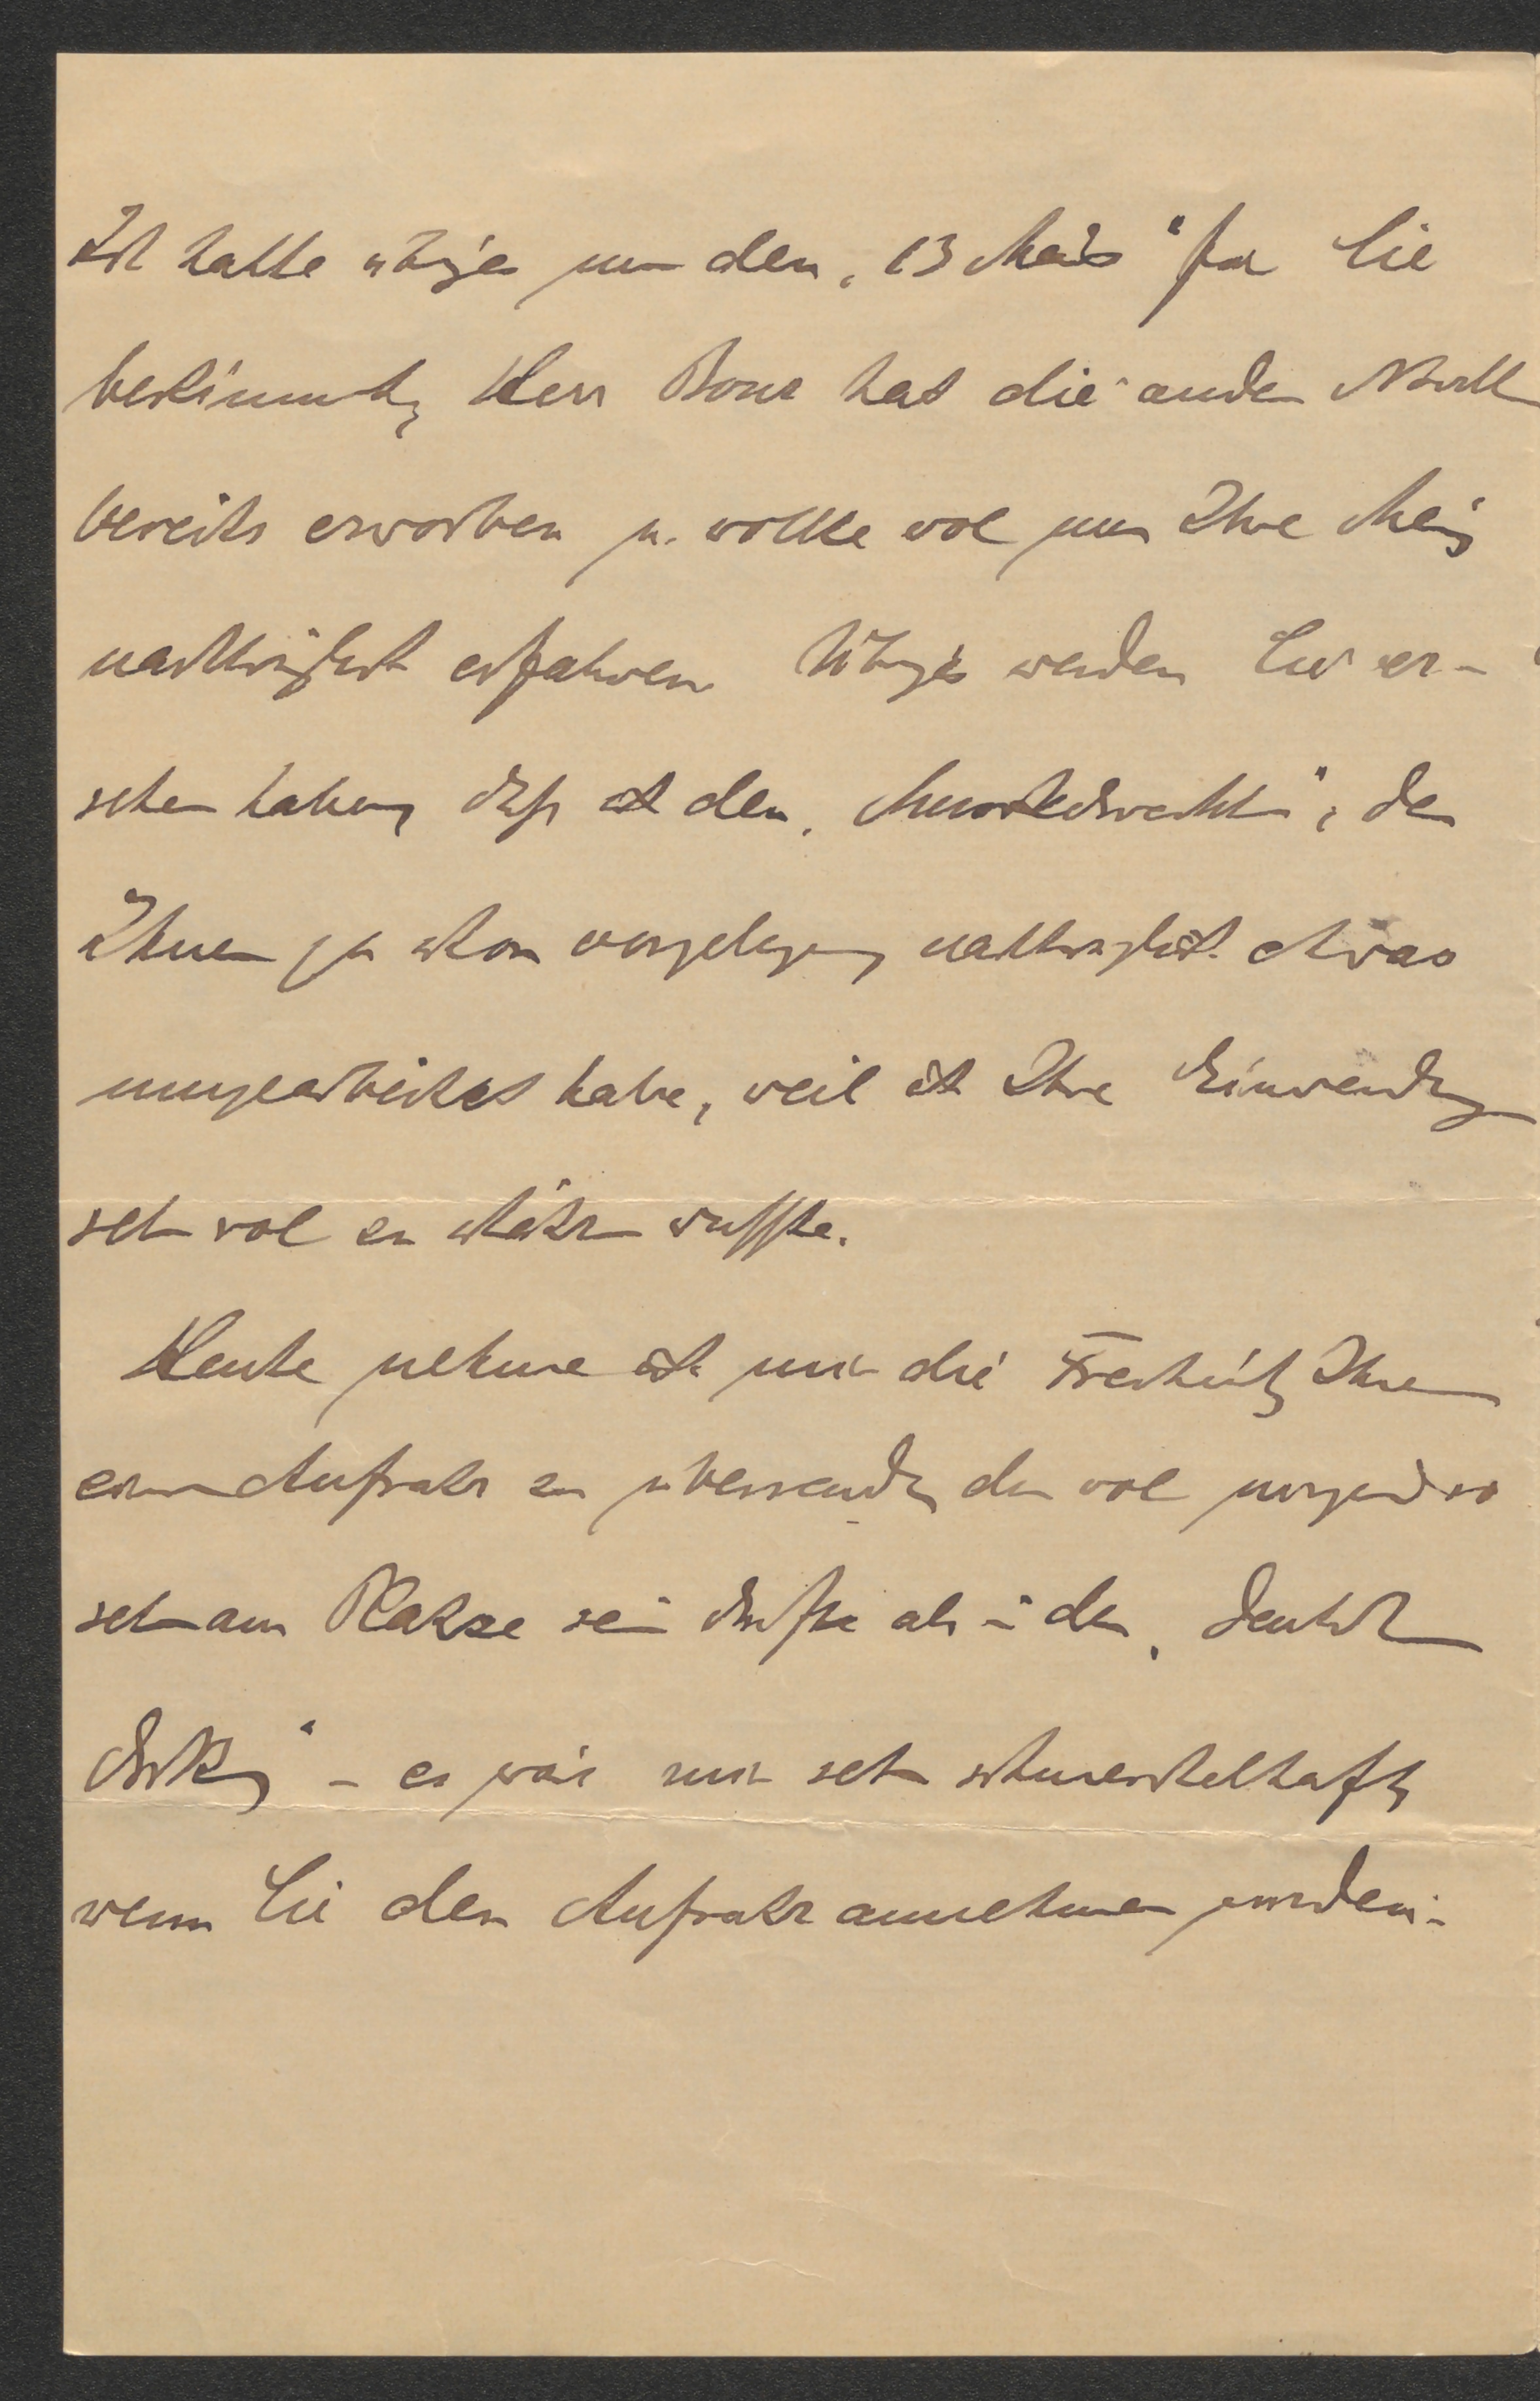 Ich hatte übrigens nur den „13 März“ für Sie
bestimmt, Herr Bour hat die anderen
bereits erworben u. wollte wol nur Ihre Meing
nachträglich erfahren Übrigens werden Sie er-
sehen haben, daß ich den der
Ihnen ja schon vorgelegen, nachträglich etwas
umgearbeitet habe, weil ich Ihre Einwendg
sehr wol zu schätzen wusste.
Heute nehme ich mir die Freiheit, Ihnen
einen Aufsatz zu übersenden der wol nirgend so
sehr am Platze sein dürfte als in der „Deutsch
Dichtg“ – es wär mir sehr schmeichelhaft,
wenn Sie den Aufsatz annehmen würden.